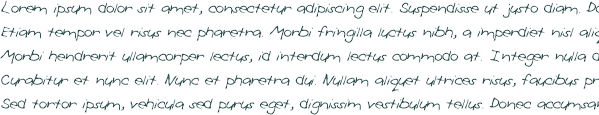 Lorem ipsum dolor sit amet, consectetur adipiscing elit. Suspendisse ut justo diam. Do
Etiam tempor vel risus nec pharetra. Morbi fringilla luctus nibh, a imperdiet nisl aliq
Morbi hendrerit ullamcorper lectus, id interdum lectus commodo at. Integer nulla d
Curabitur et nunc elit. Nunc et pharetra dui. Nullam aliquet ultrices risus, faucibus pr
Sed tortor ipsum, vehicula sed purus eget, dignissim vestibulum tellus. Donec accumsan